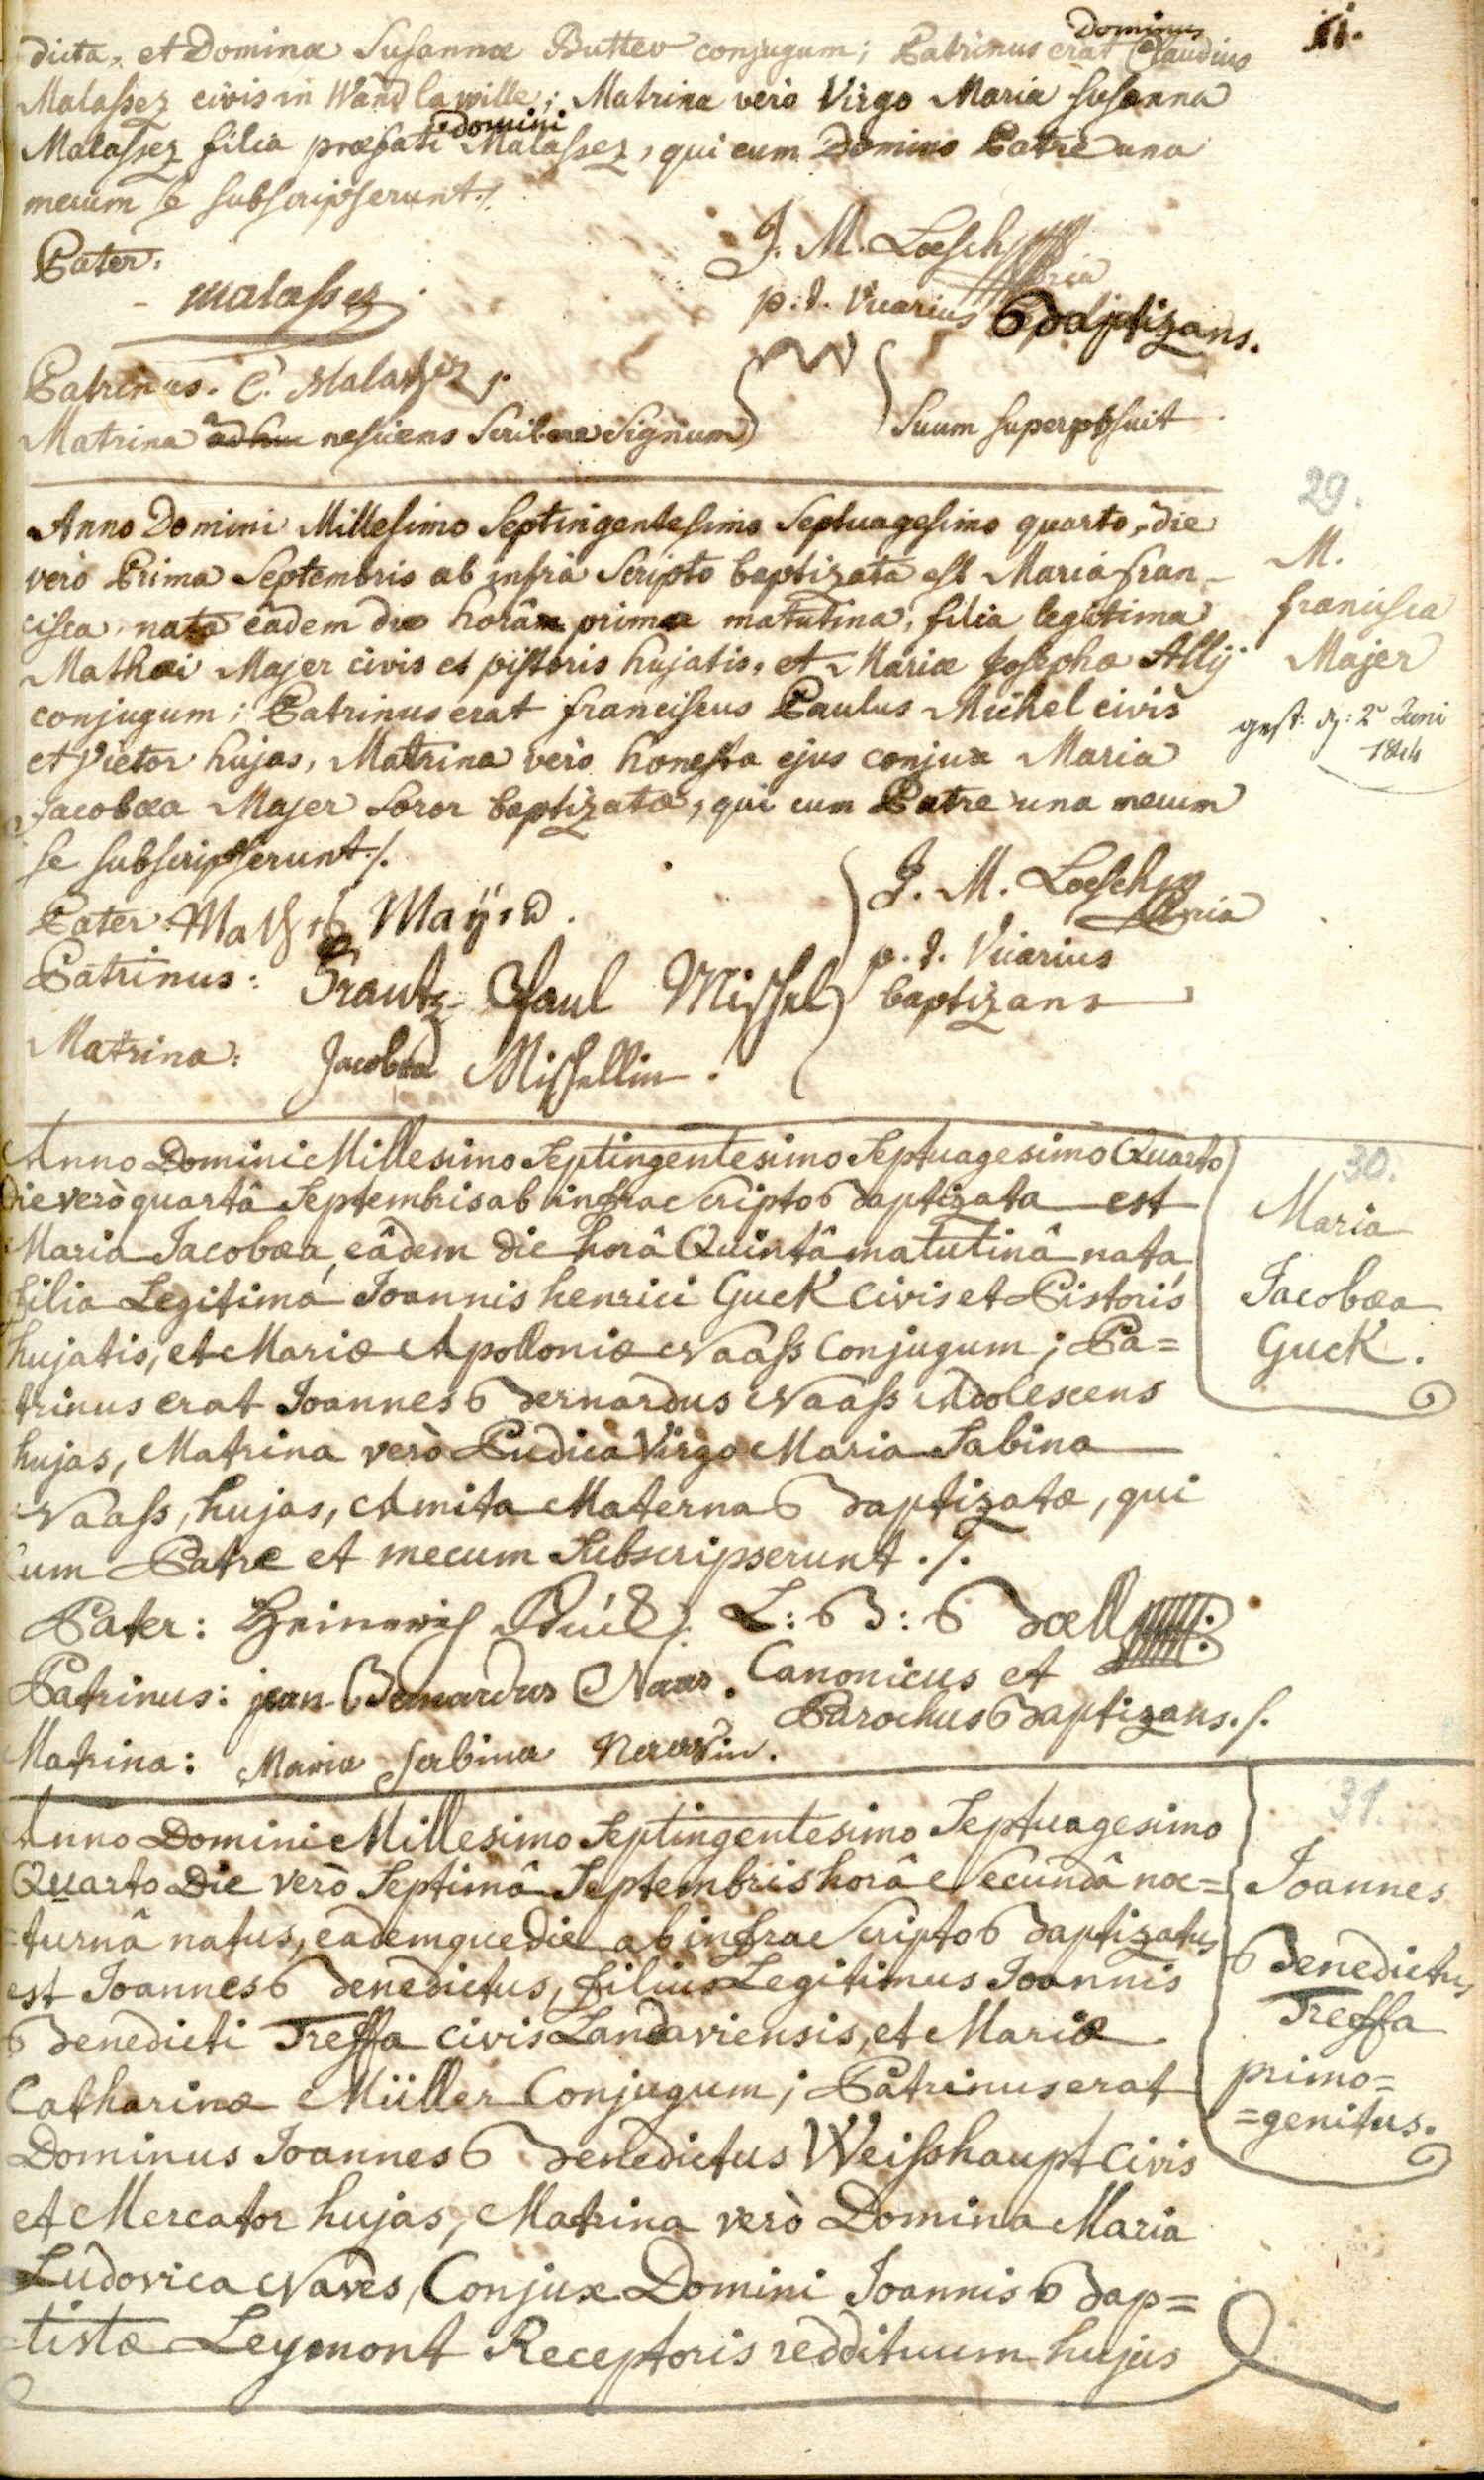 11.
dicta, et Dominæ Susannæ Butter conjugum; Patrinus erat Dominus Claudius
Malassez civis in Wand la wille; Matrina verò Virgo Maria Susanna
Malassez filia præfati Domini Malassez, qui cum Domino Patre una
mecum se subscripserunt./.
Pater: malassez
J. M. Loesch
p. t. Vicarius Baptizans.
Patrinus. C. Malassez
Matrina ad huc nesciens Scribere Signum } { Suum superposuit
29.
Anno Domini Millesimo Septingentesimo Septuagesimo quarto, die
verò Prima Septembris ab infrà Scripto baptizata est Maria fran-
cisca, nata eâdem die horâ prima matutina, filia legitima
Mathæi Majer civis et pistoris hujatis, et Mariæ Josephæ Allÿ
conjugum; Patrinus erat franciscus Paulus Michel civis
et Vietor hujas, Matrina verò honesta ejus conjux Maria
Jacobæa Majer Soror baptizatæ, qui cum Patre una mecum
se subscripserunt./.
M.
francisca
Majer
gest: d: 2 Juni
1844
Pater: Mathes Mayer.
Patrinus: Frantz Paul Misshel
Matrina: Jacobea Misshellin.
J. M. Loesch
p. t. Vicarius
baptizans
30.
Anno Domini Millesimo Septingentesimo Septuagesimo Quarto
Die verò quartâ Septembris ab infra Scripto Baptizata est
Maria Jacobæa, eâdem die horâ Quintâ matutinâ nata
filia Legitima Joannis henrici Guck Civis et Pistoris
hujatis, et Mariæ Apolloniæ Naass Conjugum; Pa=
trinus erat Joannes Bernardus Naass Adolescens
hujas, Matrina verò Pudica Virgo Maria Sabina
Naass, hujas, Amita Materna Baptizatæ, qui
Cum Patre et mecum Subscripserunt./.
Maria
Jacobæa
Guck.
Pater: Heinrich
Patrinus: jean Bernardus Naas.
Matrina: Maria Sabina
L: B: Boell
Canonicus et
Parochus Baptizans./.
31.
Anno Domini Millesimo Septingentesimo Septuagesimo
Quarto Die verò Septimâ Septembris horâ Secundâ noc=
=turnâ natus, eademque die ab infra Scripto Baptizatus
est Joannes Benedictus, filius Legitimus Joannis
Benedicti Treffa Civis Landaviensis, et Mariæ
Catharinæ Müller Conjugum; Patrinus erat
Dominus Joannes Benedictus Weisshaupt Civis
et Mercator hujas, Matrina verò Domina Maria
Ludovica Navès, Conjux Domini Joannis Bap=
=tistæ Leymont Receptoris reddituum hujus
Joannes
Benedictus
Treffa
primo=
=genitus.